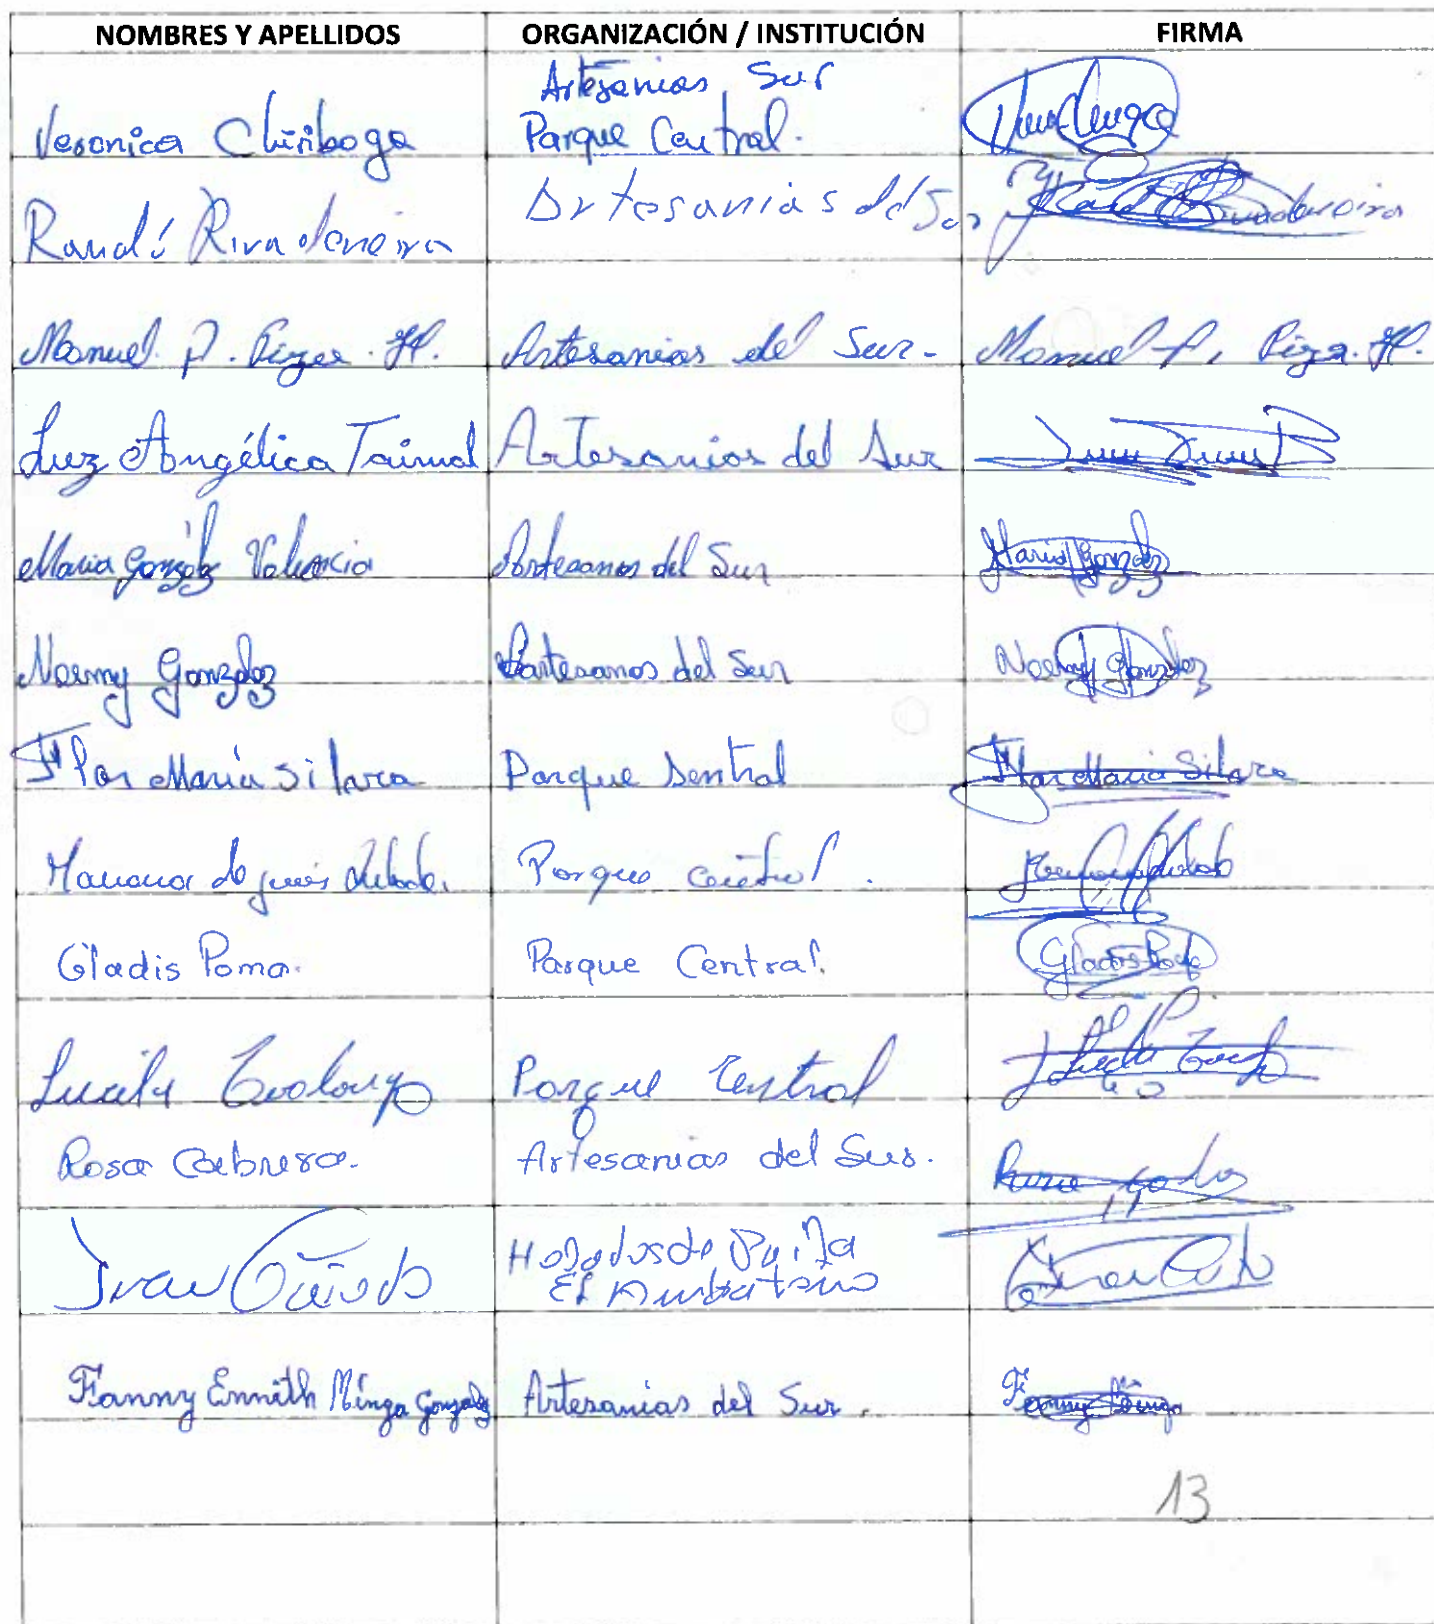 NOMBRES Y APELLIDOS ORGANIZACIÓN / INSTITUCIÓN FIRMA
Veronica Chiriboga Artesanias Sur
Parque Central.
Artesanias del Sur
Manuel P. Artesanias del Sur- Manuel P.
Luz Angélica Taimal Artesanias del Sur
Maria González Valencia Artesanos del Sur Maria González
Noemy González Artesanos del Sur Noemy González
Flor María Silva Parque Sentral Flor Maria Silva
Parque central.
Gladis Poma. Parque Central. Gladis
Lucila Parque Central
Rosa Cabrera. Artesanias del Sur.
Ivan Helados de Paila
El Ambateño
Fanny Ennith Minga González Artesanias del Sur. Fanny Minga
13